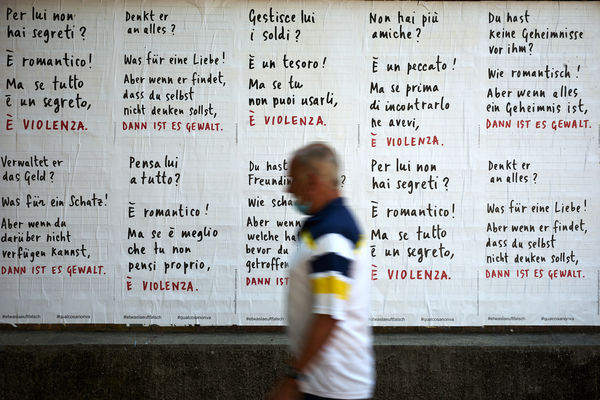 Per lui non
hai segreti?
È romantico!
Ma se tutto
è un segreto,
È VIOLENZA.
Denkt er
an alles?
Was für eine Liebe!
Aber wenn er findet,
dass du selbst
nicht denken sollst,
DANN IST ES GEWALT.
Gestisce lui
i soldi?
È un tesoro!
Ma se tu
non puoi usarli,
È VIOLENZA.
Non hai più
amiche?
È un peccato!
Ma se prima
di incontrarlo
ne avevi,
È VIOLENZA.
Du hast
keine Geheimnisse
vor ihm?
Wie romantisch!
Aber wenn alles
ein Geheimnis ist,
DANN IST ES GEWALT.
Verwaltet er
das Geld?
Was für ein Schatz!
Aber wenn du
darüber nicht
verfügen kannst,
DANN IST ES GEWALT.
#etwaslaeuftfalsch #qualcosanonva
Pensa lui
a tutto?
È romantico!
Ma se è meglio
che tu non
pensi proprio,
È VIOLENZA.
#etwaslaeuftfalsch #qualcosanonva
Du hast
Wie
Aber wenn
bevor du
getroffen
DANN IST
Per lui non
hai segreti?
È romantico!
Ma se tutto
è un segreto,
È VIOLENZA.
#qualcosanonva
Denkt er
an alles?
Was für eine Liebe!
Aber wenn er findet,
dass du selbst
nicht denken sollst,
DANN IST ES GEWALT.
#etwaslaeuftfalsch #qualcosanonva